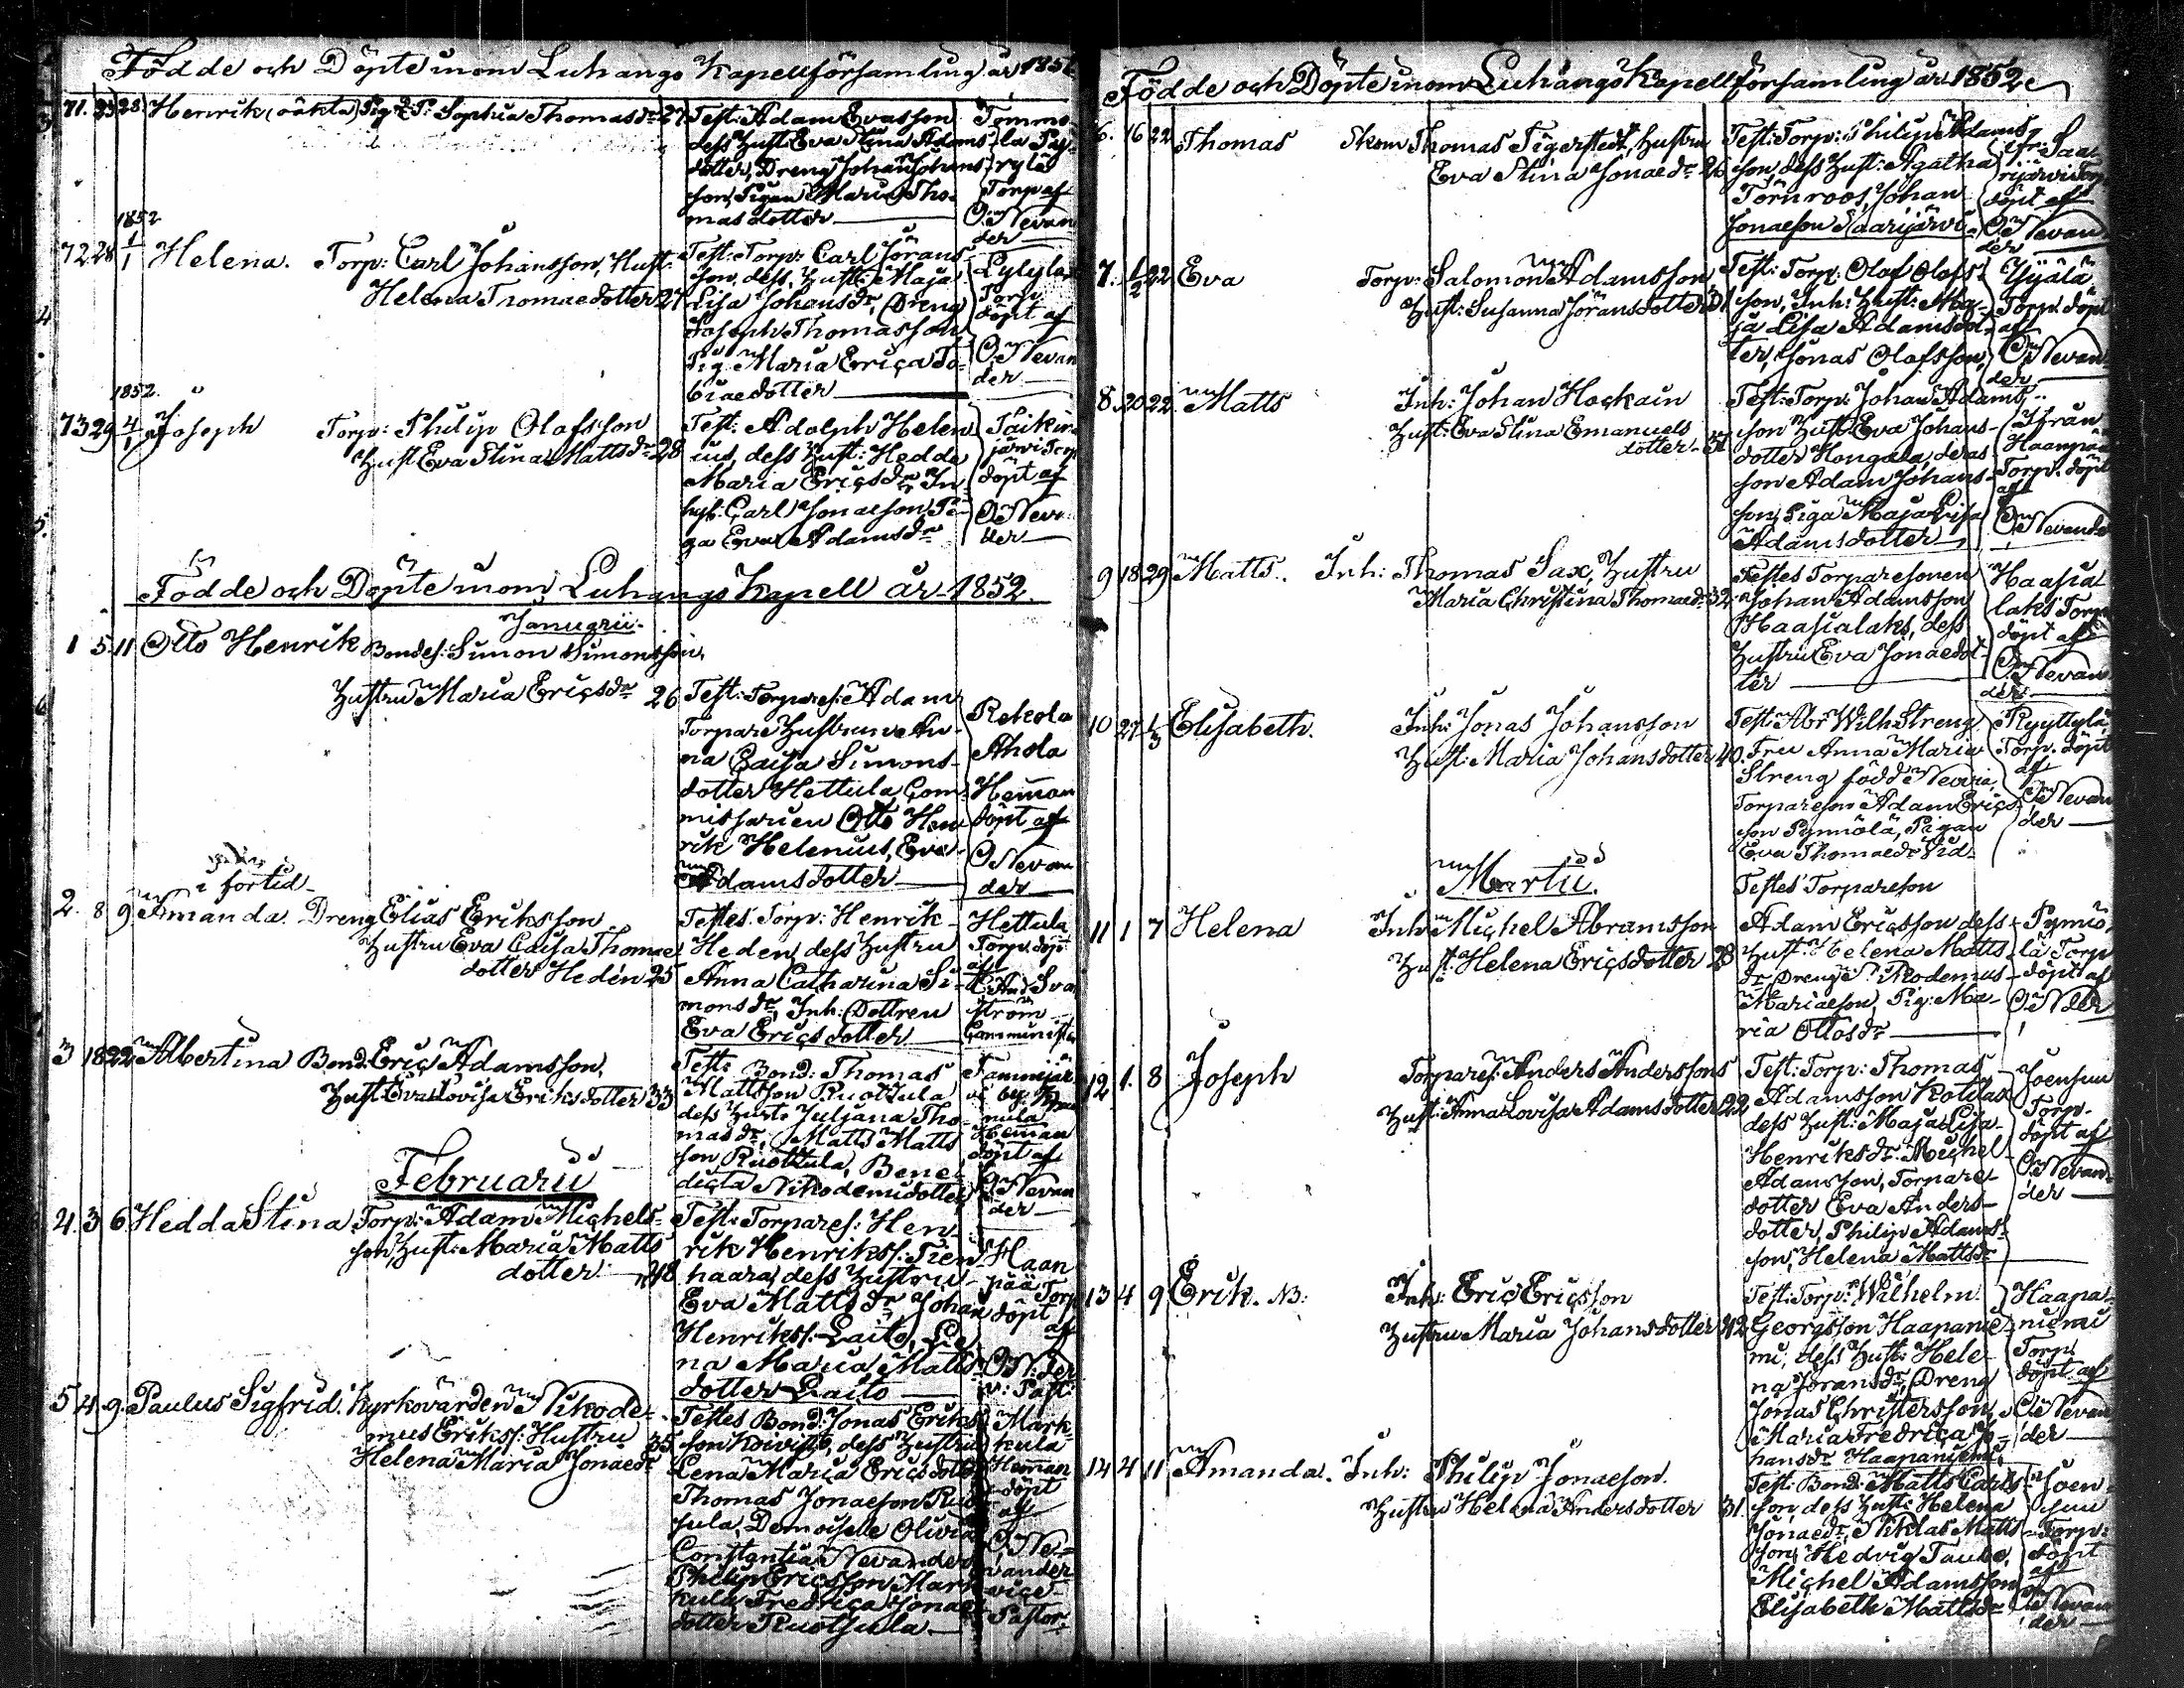 Födde och Döpte inom Luhango Kapellförsamling år 1851
71. 23 28 Henrik (oäkta) Pig: Sophia Thomasdr 27 Test: Adam Evasson
dess Hust: Eva Stina Adams-
dotter, Dreng Johan Johans-
son, Pigan Maria Tho-
masdotter
Torp af
O. Nevan
der
1852
72. 28 1/1 Helena. Torp: Carl Johansson, Hust:
Helena Thomaedotter 27
Test: Torp: Carl Jörans-
son, dess Hust: Maja
Lisa Johansdr, Dreng
Joseph Thomasson,
Pig. Maria Erica To-
biaedotter
Lylyla
Torp
döpt af
O. Nevan
der
1852.
73 29 4/1 Joseph Torp: Philip Olofsson
Hust Eva Stina Mattsdr 28
Test: Adolph Helen
ius, dess Hust: Hedda
Maria Ericsdr, In-
hys. Carl Jonaeson, Pi-
ga Eva Adamsdr
järvi Torp
döpt af
O. Nevan
der
Födde och Döpte inom Luhango Kapell år 1852.
Januarii.
1 5 11 Otto Henrik Bondes: Simon Simonsson,
Hustru Maria Ericsdr 26
Test: Torpares: Adam
Torpare Hustrun An-
na Caisa Simons-
dotter Hettula, Com-
missarien Otto Hen
rik Helenius, Eva
Adamsdotter
Rekola
Ahola
Heman
döpt af
O. Nevan
der
i förtid
2. 8 9. Amanda. Dreng Elias Eriksson
Hustru Eva Caisa Thomae
dotter Hedén 25
Testes Torp: Henrik
Heden, dess Hustru
Anna Catharina Si-
monsdr, Inh: Dottren
Eva Ericsdotter
Hettula
Torp. döpt
af
ström
3 18 22 Albertina Bond. Eric Adamsson,
Hust: Eva Lovisa Eriksdotter 33
Test: Bond: Thomas
Mattsson Ruottula
dess Hust: Juljana Tho-
masdr, Matts Matts
son Ruottula, Bene-
dicta Nikodemidotter
Heman
döpt af
O. Nevan
der
Februarii
4. 3 6 Hedda Stina Torp: Adam Michels-
son, Hust: Maria Matts
dotter
Test: Torpares: Hen-
rik Henrikss: Tien
haara, dess Hustru
Eva Mattsdr, Johan
Henrikss: Laito, Le
na Maria Matts
dotter Laito
Haan
pää Torp
döpt
af
5 4 9. Paulus Sigfrid. Kyrkovärden Nikode-
mus Erikss: Hustru 35
Helena Maria Jonaedr
Testes Bond: Jonas Eriks
son Koivisto, dess Hustru
Lena Maria Ericsdotter
Thomas Jonaeson Ruot
sula, Demoiselle Olivia
Constantia Nevander
Philip Ericsson Mark
kula, Fredrica Jonae
dotter Ruotsula
Mark-
kula
Heman
döpt
af
O. Ne-
vander
vice
Pastor
Födde och Döpte inom Luhango Kapellförsamling år 1852
6. 16 22 Thomas Skom Thomas Tigerstedt, Hustru
Eva Stina Jonaedr 26
Test: Torp: Philip Adams
son, dess Hust: Agatha
Törnroos, Johan
Jonaeson Saarijärvi
ifr. Saa
rijärvi Torp
döpt af
O. Nevan
der
7. 1/2 22 Eva Torp: Salomon Adamsson,
Hust: Susanna Jöransdotter
Test: Torp: Olof Olofs-
son, Inh: Hust: Ma-
ja Lisa Adamsdot-
ter, Jonas Olofsson,
Torp döpt
af
O. Nevan
der
8. 20 22. Matts Inh: Johan Hockain
Hust: Eva Stina Emanuels
dotter
Test: Torp: Johan Adams
son Hust: Eva Johans-
dotter Hongala, deras
son Adam Johans-
son, Piga Maja Lisa
Adamsdotter
Ifrån
Haanpää
Torp. döpt
af
O. Nevander
9 18 29 Matts.. Inh: Thomas Sax, Hustru
Maria Christina Thomaedr 32
Testes Torparesonen
Johan Adamsson
Haasialaks, dess
Hustru Eva Jonaedot-
ter
Haasia
laks Torp
döpt af
O. Nevan
der
10 27 1/3 Elisabeth. Inh: Jonas Johansson
Hust: Maria Johansdotter 40.
Test: Abr Wilh Streng
Fru Anna Maria
Streng född
Torpareson Adam Erics-
son Pymiölä, Pigan
Eva Thomaedr
Ryyttylä
Torp. döpt
af
O. Nevan
der
Martii.
11 1 7 Helena Inh: Michel Abramsson
Hust. Helena Ericsdotter 28
Testes Torpareson
Adam Ericsson, dess
Hust: Helena Matts
dr, Drenge Nikodemus
Mariaeson, Pig: Ma-
ria Ottosdr
Pymiö-
lä Torp
döpt af
O. N:der
12 1. 8 Joseph Torpares: Anders Anderssons
Hust: Anna Lovisa Adamsdotter 22
Test: Torp: Thomas
Adamsson Kotilas
dess Hust: Maja Lisa
Henriksdr, Michel
Adamsson, Torpare-
dotter Eva Anders-
dotter, Philip Adams-
son, Helena Mattsdr
Joensuu
Torp.
döpt af
O. Nevan-
der
13 4 9 Erik. NB: Inh: Eric Ericsson
Hustru Maria Johansdotter 42
Test: Torp: Wilhelm
Georgsson Haapanie-
mi, dess Hust: Hele-
na Joransdr, Dreng
Jonas Christersson,
Maria Fredrica Jo-
hansdr Haapaniemi
Haapa-
niemi
Torp
döpt af
O. Nevan
der
14 4 11 Amanda. Inh: Philip Jonaeson.
Hustru Helena Andersdotter 31.
Test: Bond: Matts Carls-
son, dess Hust: Helena
Jonaedr, Niklas Matts
son, Hedvig Taube,
Michel Adamsson
Elisabeth Mattsdr
Joen-
suu
Torp:
döpt
af
O. Nevan
der